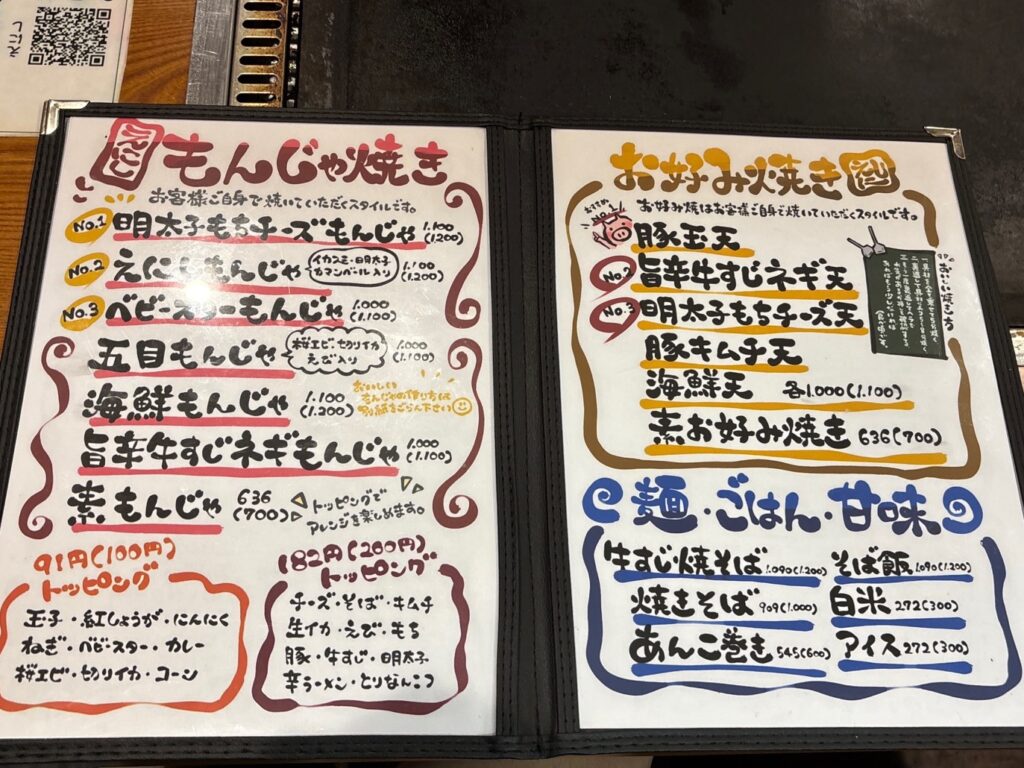 えにし
えにし もんじゃ焼き
お客様ご自身で焼いていただくスタイルです。
No.1 明太子もちチーズもんじゃ 1.100 (1.200)
No.2 えにしもんじゃ イカスミ・明太子 カマンベール入り 1.100 (1.200)
No.3 ベビースターもんじゃ 1.000 (1.100)
五目もんじゃ 桜エビ・切りイカ えび入り 1.000 (1.100)
海鮮もんじゃ 1.100 (1.200)
おいしい
もんじゃの作り方は
別紙をごらん下さい
旨辛牛すじネギもんじゃ 1.000 (1.100)
素もんじゃ 636 (700)
トッピングで
アレンジを楽しめます。
91円(100円)
トッピング
玉子・紅しょうが・にんにく
ねぎ・ベビースター・カレー
桜エビ・切りイカ・コーン
182円(200円)
トッピング
チーズ・そば・キムチ
生イカ・えび・もち
豚・牛すじ・明太子
辛ラーメン・とりなんこつ
お好み焼き
お好み焼はお客様ご自身で焼いていただくスタイルです。
おすすめ No.1 豚玉天
No.2 旨辛牛すじネギ天
No.3 明太子もちチーズ天
豚キムチ天
海鮮天 各1.000(1.100)
素お好み焼き 636(700)
おいしい焼き方
麺・ごはん・甘味
牛すじ焼そば 1.090(1.200)
そば飯 1.090(1.200)
焼きそば 909(1.000)
白米 272(300)
あんこ巻き 545(600)
アイス 272(300)